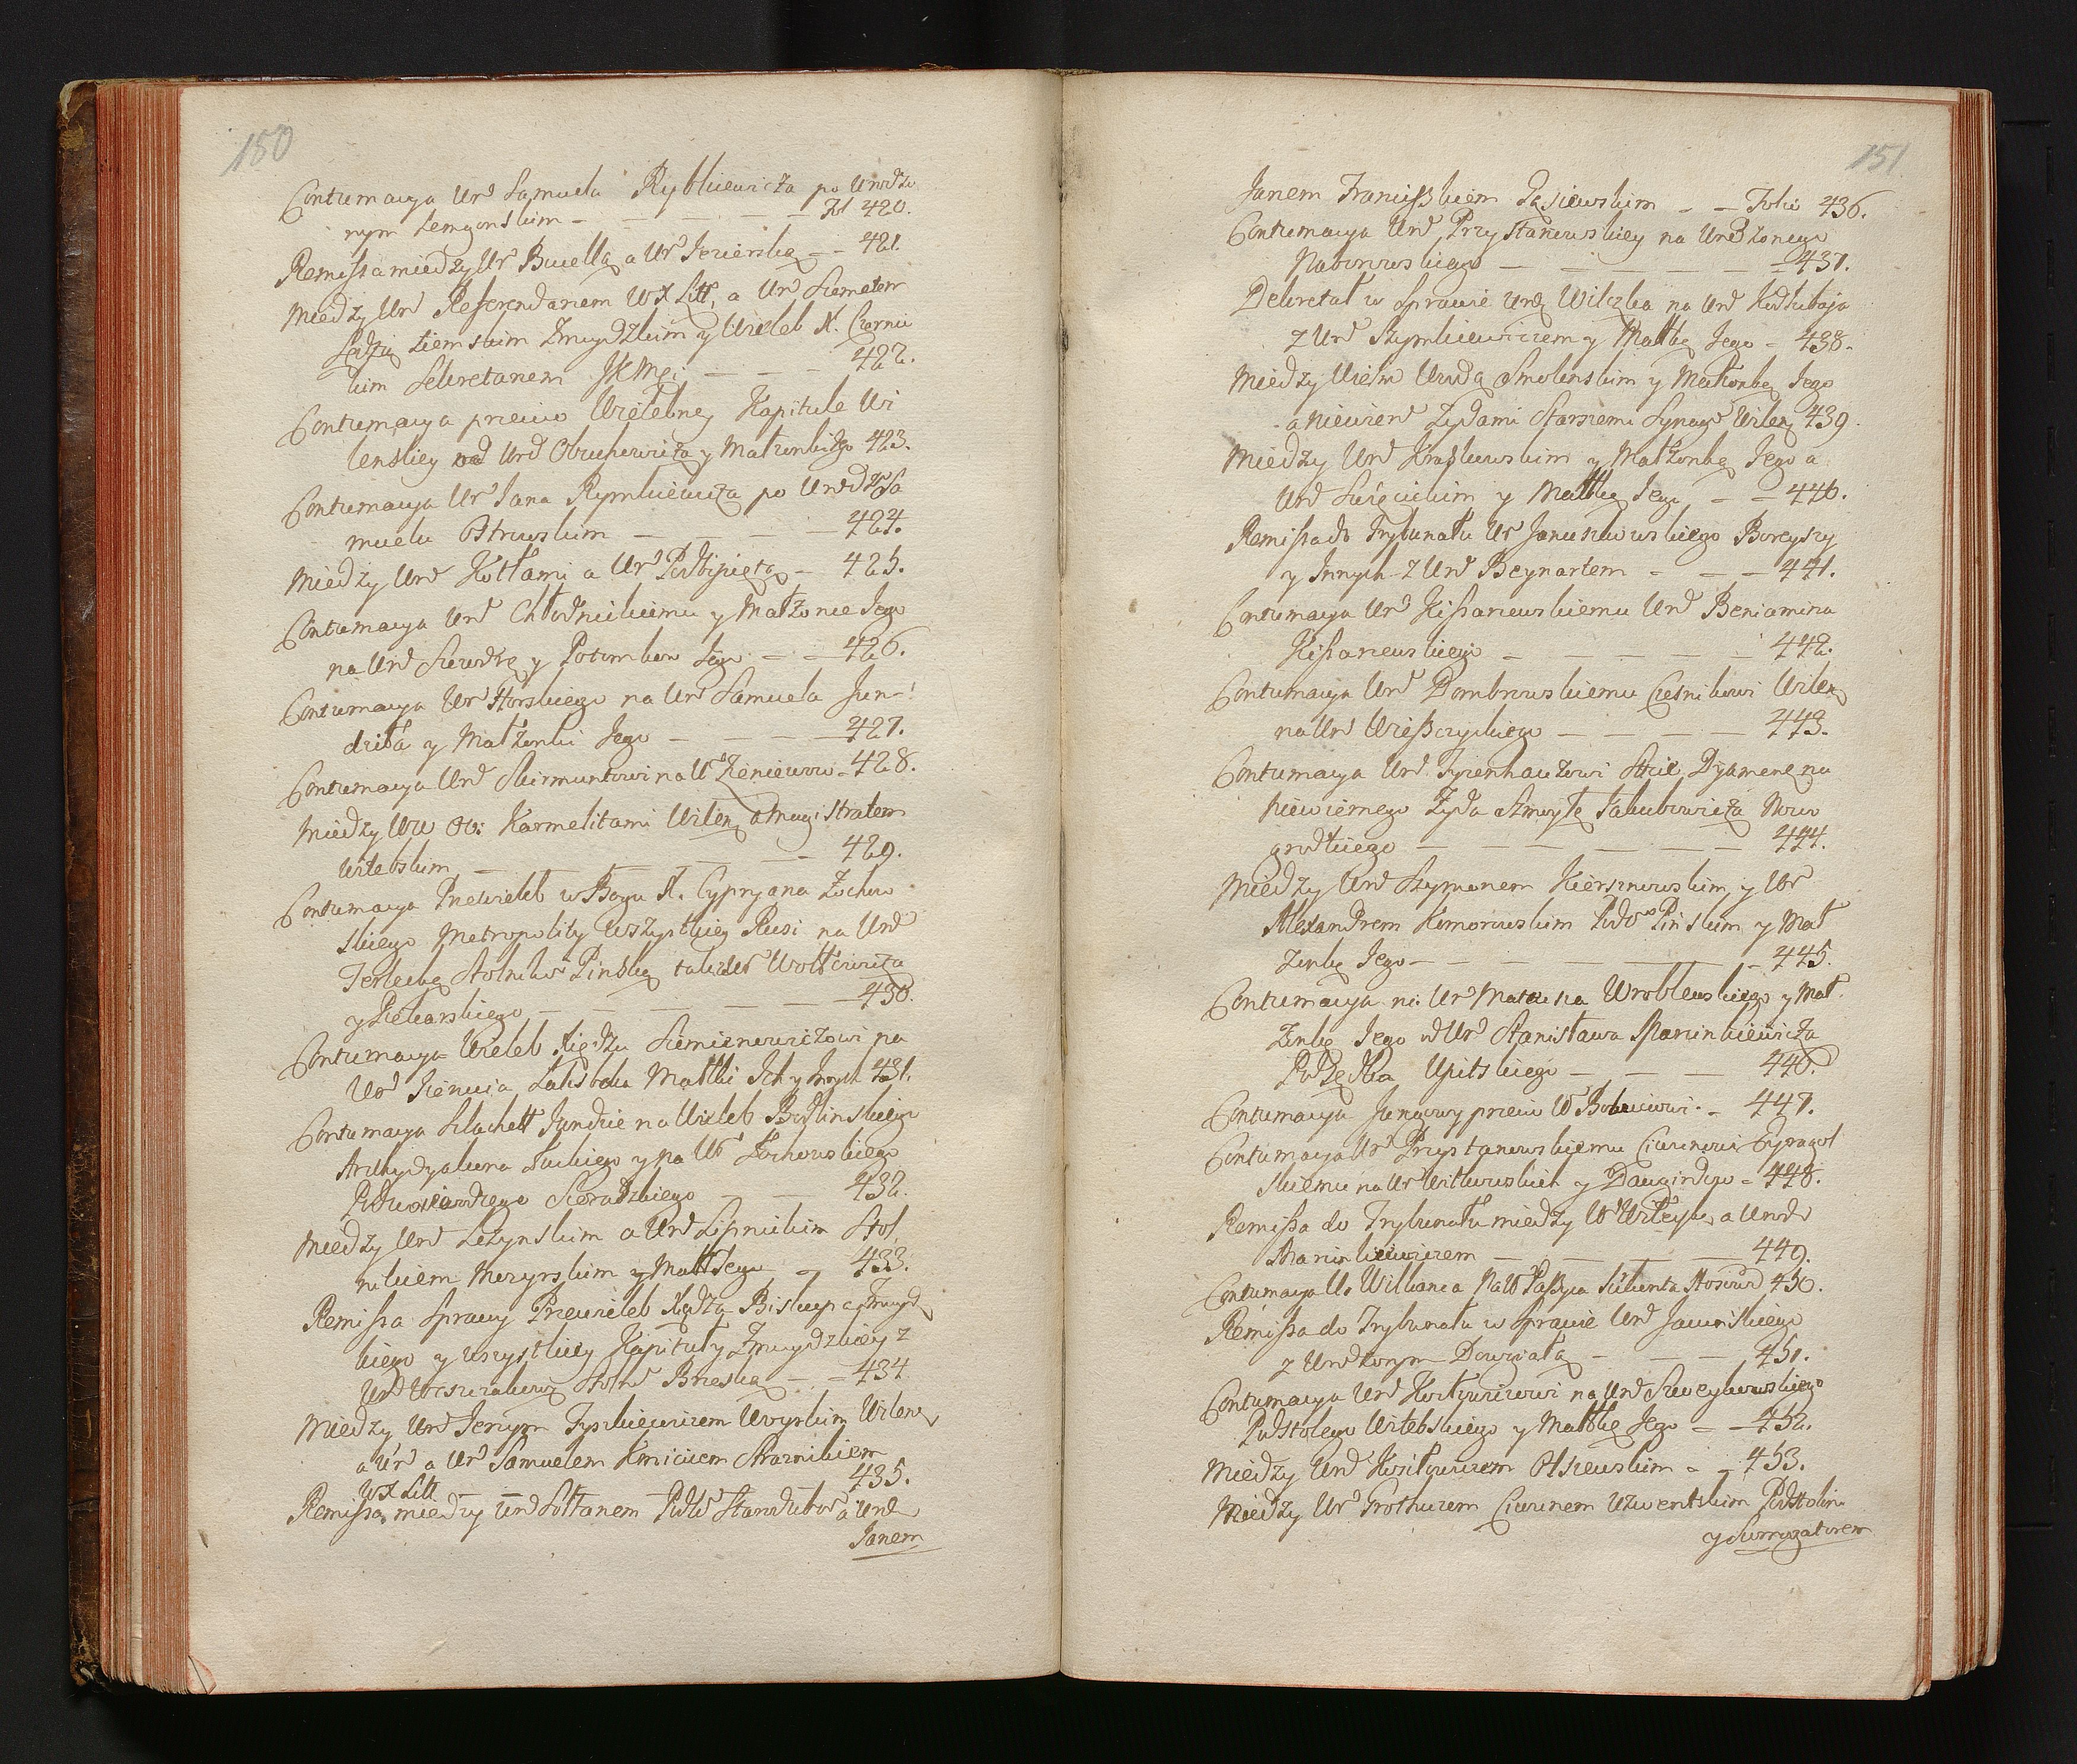 150
Contumacya Urd Samuela Rybkiewicza po Urodzo
nym Lemgonskim - - - - Fol 420.
Remissa miedzy Ur Bucellą a Ur Jezierską - - 421.
Miedzy Urd Referendarzem WX Litt, a Urd Siemetem
Sędzią Ziemskim Zmuydzkim y Wieleb X. Czarnic
kim Sekretarzem JKMci - - - 422.
Contumacya przeciwo Wielebney Kapitule Wi
lenskiey od Urd Obuchowicza y Matżonki Jego 423.
Contumacya Ur Jana Rymkiewicza po Urodz Sa
muelu Ostrowskim - - - - 424.
Miedzy Urd Kottami a Ur Podbipiętą - 425.
Contumacya Urd Chłodnickiemu y Małżonce Jego
na Urd y Potomkow Jego - - 426.
Contumacya Ur Horskiego na Ur Samuela Jun-
dziła y Małżonki Jego - - - 427.
Contumacya Urd Skirmuntowi na U Zeniewow - 428.
Miedzy WW OO: Karmelitami Wilen a Magistratem
Witebskim - - - - 429.
Contumacya Przewieleb w Bogu X. Cypryana Zochow
skiego Metropolity Wszystkiey Rusi na Urd
Terlecką Stolnikow Pinską takze Ur Wołkowicza
y Piekarskiego - - - - 430.
Contumacya Wieleb Xiędzu Siemienowiczowi na
Urd Jeznicia Matki Ich y Innych 431.
Contumacya Szlachett Jundzie na Wieleb Bodlinskiego
Archydyakona Łuckiego y na Ur Kochowskiego
Podwoiewodzego Sieradzkiego - - 432.
Miedzy Urd Lezynskim a Urd Lipnickim Stol
nikiem Mozyrskim y Matt Jego - - 433.
Remissa Sprawy Przewieleb Xiędza Biskupa Zmuyd
kiego y wszystkiey Kapituły Zmuydzkiey z
Urd Stoln Brzeską - - 434
Miedzy Urd Jerzym Tyszkiewiczem Woyskim Wilen
a Ur a Ur Samuelem Kmicicem Strażnikiem
WX Litt - - - 435.
Remissa miedzy Urd Sołtanem Podk Starodubow a Urd
Janem
151
Janem Franciszkiem Gąsiewskim - - Folio 436.
Contumacya Urd Przystanowskiey na Urodzonego
Nabonowskiego - - - - 437.
Dekretał w Sprawie Urd Wilczka na Urd Kodzubaja
z Urd Szymkiewiczem y Mattką Jego - 438.
Miedzy Wielm Smolenskim y Małżonką Jego
a Niewiern Zydami Starszemi Synag Wilen 439.
Miedzy Urd Kraskowskim y Małżonką Jego a
Urd Sieścickim y Mattką Jego - - 440.
Remissa do Trybunału Ur Januszkowskiego Boreyszy
y Innych z Urd Beynartem - - - 441.
Contumacya Urd Kiszarzewskiemu Urd Beniamina
Kiszarzewskiego - - - - 442.
Contumacya Urd Dombrowskiemu Czesnikowi Wilen
na Urd Wieszczyckiego - - - - 443.
Contumacya Urd Tyzenhauzowi Dyamen na
Niewiernego Zyda Szmuyłę Jakubowicza Nowo
grodzkiego - - - - - 444.
Miedzy Urd Szymonem Kiersznowskim y Ur
Alexandrem Komorowskim Podws Pinskim y Mał
żonką Jego - - - - - 445.
Contumacya na Ur Mateusza Wroblewskiego y Mał
żonkę Jego od Urd Stanisława Marcinkiewicza
Podsędka Upitskiego - - - 446.
Contumacya Jungowy przeciw U Bokuciowi. - 447.
Contumacya Ur Przystanowskiemu Ciwunowi Eyragol
skiemu na Ur Witkowskich y Daugirdego - 448.
Remissa do Trybunału miedzy U a Urodz
Marcinkiewiczem - - - - 449.
Contumacya Ur Wilkanca 450.
Remissa do Trybunału w Sprawie Urd Jawoiskiego
z Urodzonym Dowgiałą - - - 451.
Contumacya Urd Kosciuszkowi na Urd Szweykowskiego
Podstolego Witebskiego y Mattkę Jego - - 452.
Miedzy Urd Kosciuszkiem Olszewskim - - 453.
Miedzy Ur Grothuzem Ciwunem Uzwentskim Podstolin
y Surrogatorem